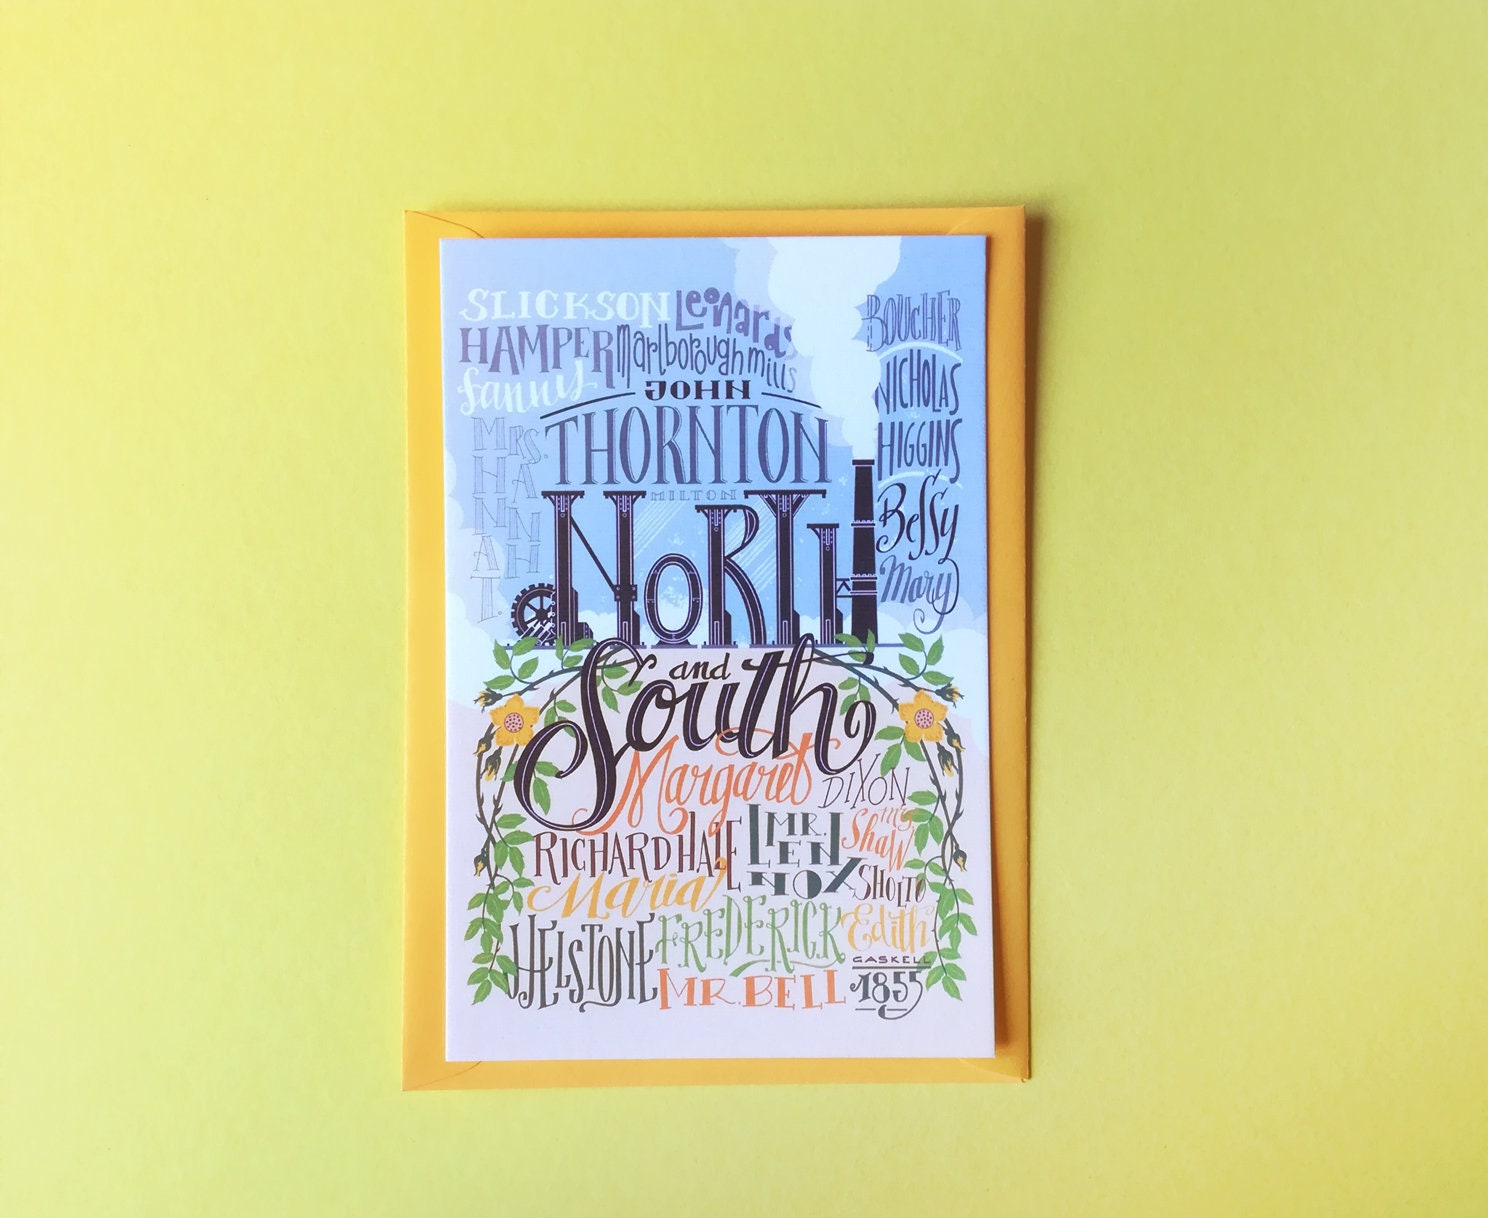 SLICKSON Leonards
HAMPER Marlborough mills
Fanny
JOHN
THORNTON
MRS.
HANNAH T.
BOUCHER
NICHOLAS
HIGGINS
Bessy
Mary
MILTON
NORTH
and
South
Margaret DIXON
RICHARD HALE MR. LENNOX Mrs Shaw
Maria SHOLTO
HELSTONE FREDERICK Edith
MR. BELL GASKELL
1855